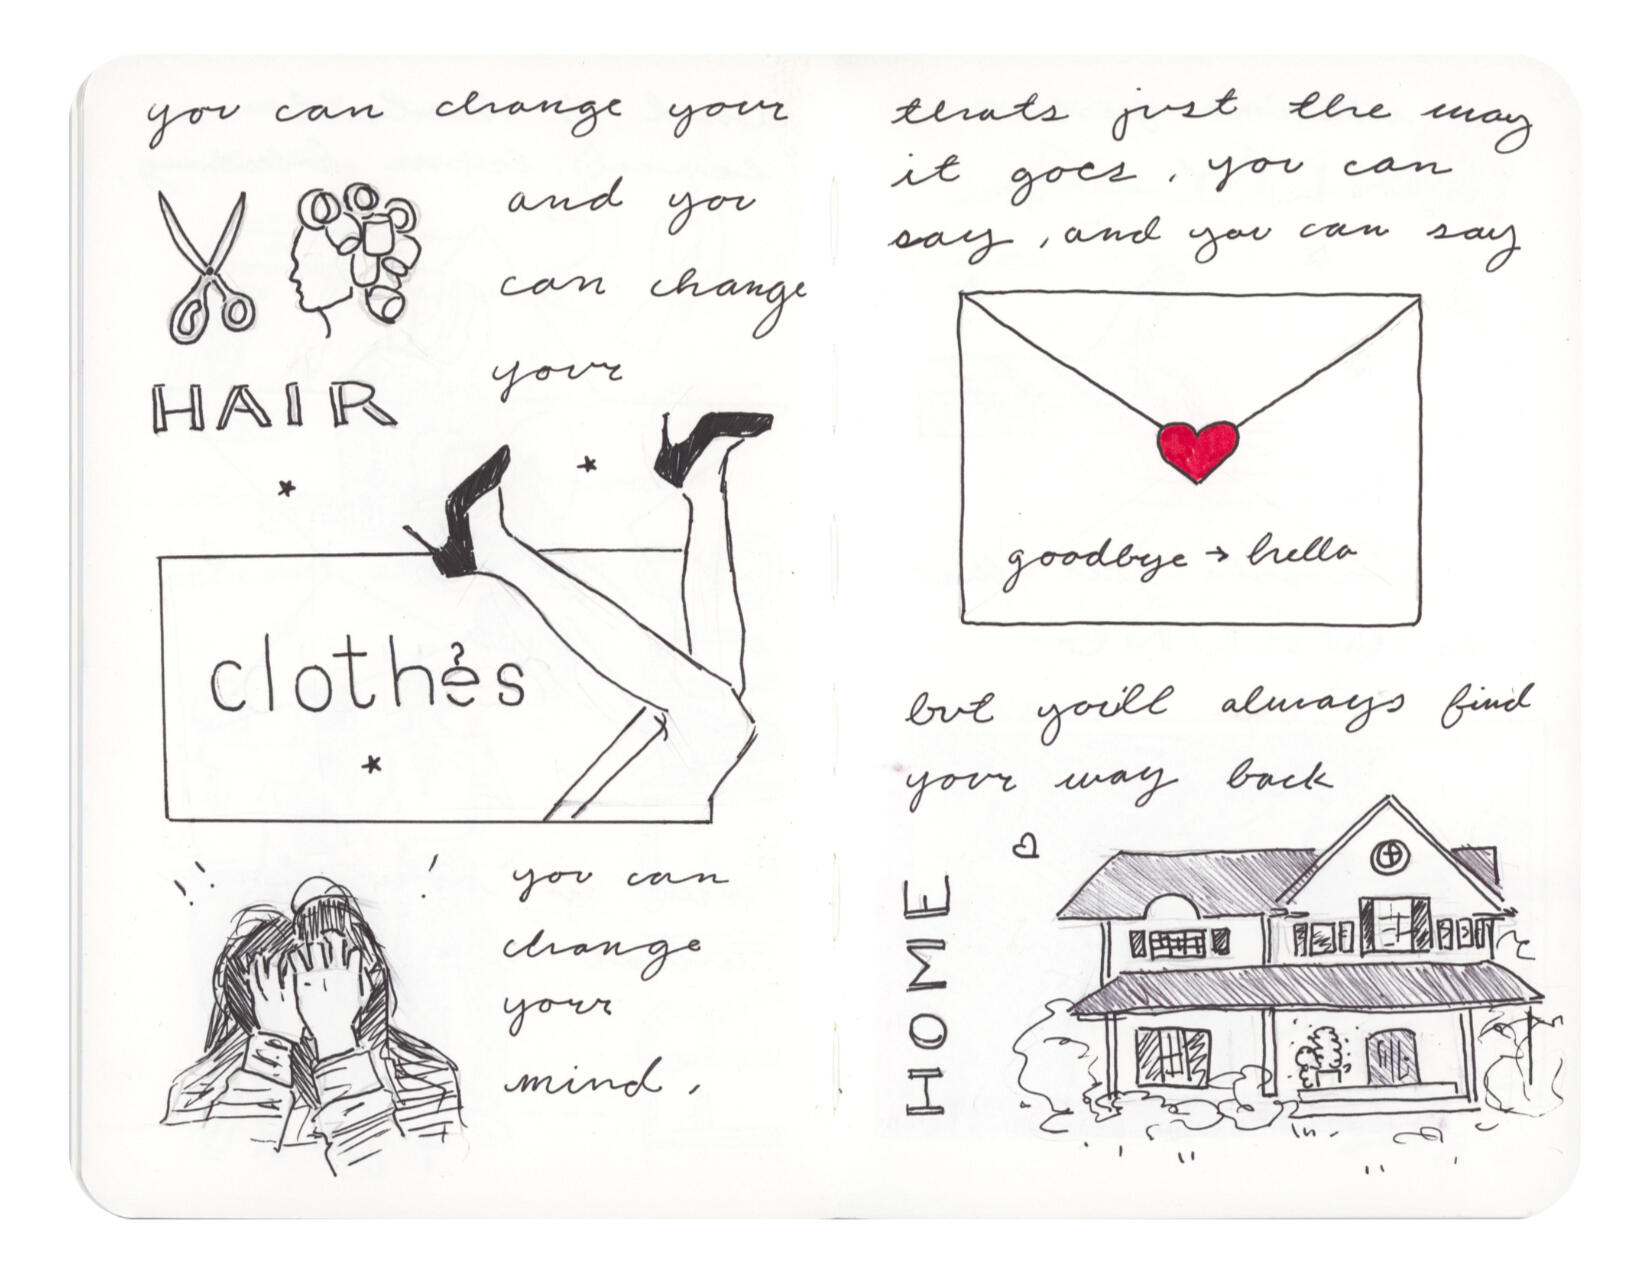 you can change your
and you
can change
your
HAIR
clothes
you can
change
your
mind,
thats just the way
it goes, you can
say, and you can say
goodbye → hello
but you'll always find
your way back
HOME